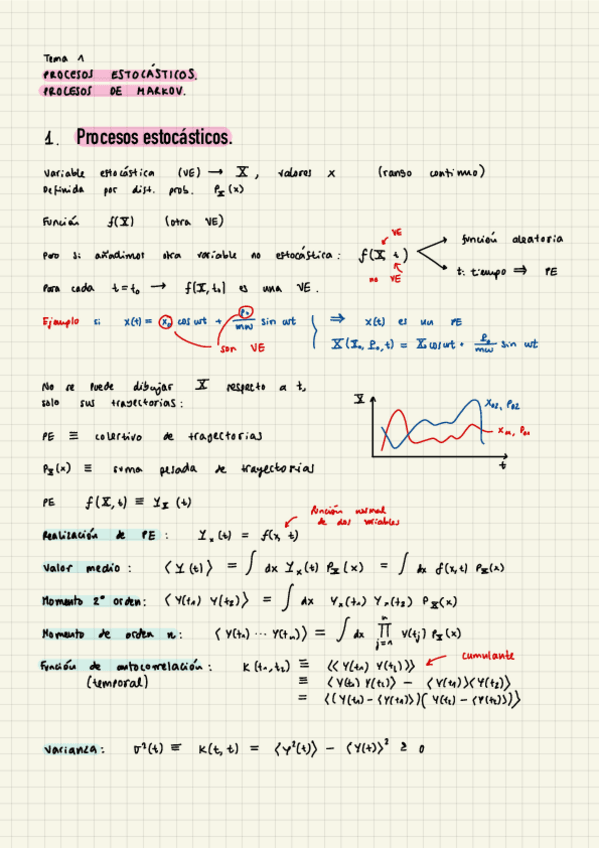 Tema 1
PROCESOS ESTOCÁSTICOS.
PROCESOS DE MARKOV.
1. Procesos estocásticos.
Variable estocástica (VE) → X, valores x (rango continuo)
Definida por dist. prob. P_X(x)
Función f(X) (otra VE)
VE
Pero si añadimos otra variable no estocástica: f(X, t)
función aleatoria
t: tiempo ⇒ PE
no VE
Para cada t = t₀ → f(X, t₀) es una VE.
Ejemplo si x(t) = x₀ cos ωt + p₀/mω sin ωt ⇒ x(t) es un PE
son VE
X(X₀, P₀, t) = X₀ cos ωt + P₀/mω sin ωt
No se puede dibujar X respecto a t,
solo sus trayectorias:
X
x₀₂, p₀₂
x₀₁, p₀₁
t
PE ≡ colectivo de trayectorias
P_X(x) ≡ suma pesada de trayectorias
PE f(X, t) ≡ Y_X(t)
función normal
de dos variables
Realización de PE: Y_x(t) = f(x, t)
Valor medio: ⟨Y(t)⟩ = ∫ dx Y_x(t) P_X(x) = ∫ dx f(x,t) P_X(x)
Momento 2º orden: ⟨Y(t₁) Y(t₂)⟩ = ∫ dx Y_x(t₁) Y_x(t₂) P_X(x)
Momento de orden n: ⟨Y(t₁) ⋯ Y(t_n)⟩ = ∫ dx ∏_{j=1}^{n} Y(t_j) P_X(x)
Función de autocorrelación: K(t₁,t₂) ≡ ⟨⟨Y(t₁) Y(t₂)⟩⟩ cumulante
(temporal) ≡ ⟨Y(t₁) Y(t₂)⟩ − ⟨Y(t₁)⟩⟨Y(t₂)⟩
= ⟨(Y(t₁) − ⟨Y(t₁)⟩)(Y(t₂) − ⟨Y(t₂)⟩)⟩
Varianza: σ²(t) ≡ K(t, t) = ⟨Y²(t)⟩ − ⟨Y(t)⟩² ≥ 0